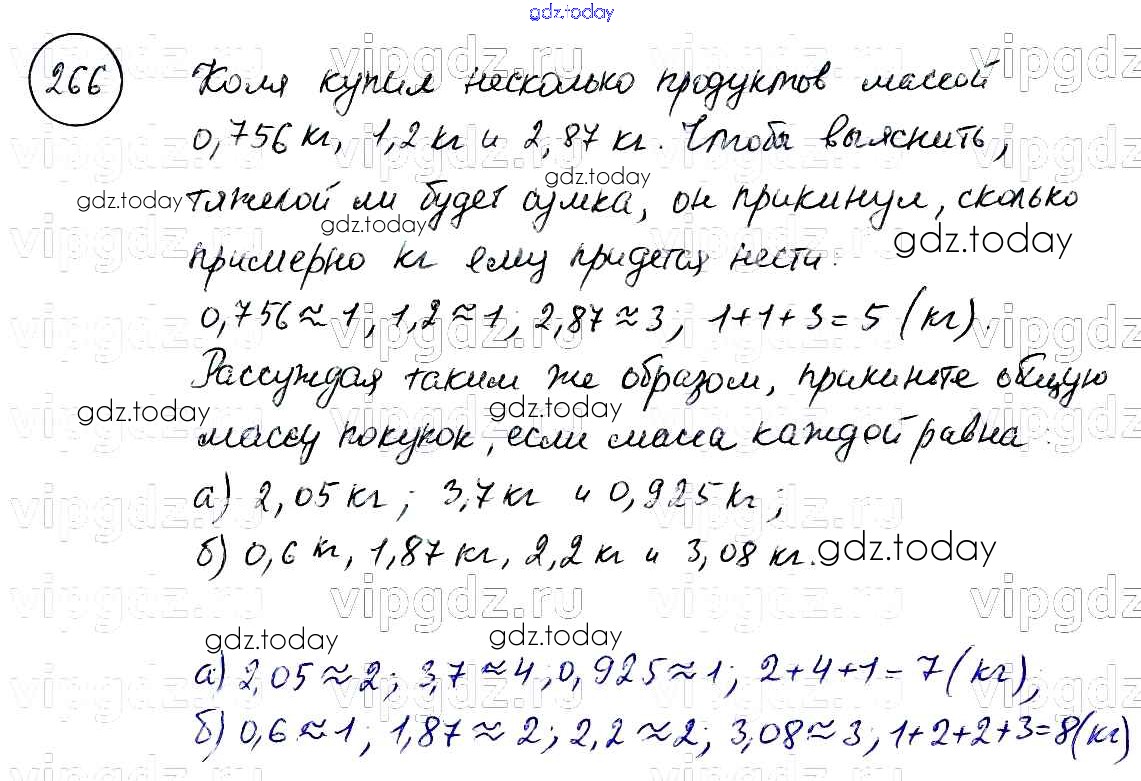 gdz.today
266 Коля купил несколько продуктов массой
0,756 кг, 1,2 кг и 2,87 кг. Чтобы выяснить,
тяжелой ли будет сумка, он прикинул, сколько
примерно кг ему придется нести:
0,756 ≈ 1; 1,2 ≈ 1; 2,87 ≈ 3; 1+1+3 = 5 (кг).
Рассуждая таким же образом, прикиньте общую
массу покупок, если масса каждой равна:
а) 2,05 кг; 3,7 кг и 0,925 кг;
б) 0,6 кг, 1,87 кг, 2,2 кг и 3,08 кг.
а) 2,05 ≈ 2; 3,7 ≈ 4; 0,925 ≈ 1; 2+4+1 = 7 (кг);
б) 0,6 ≈ 1; 1,87 ≈ 2; 2,2 ≈ 2; 3,08 ≈ 3; 1+2+2+3=8(кг)